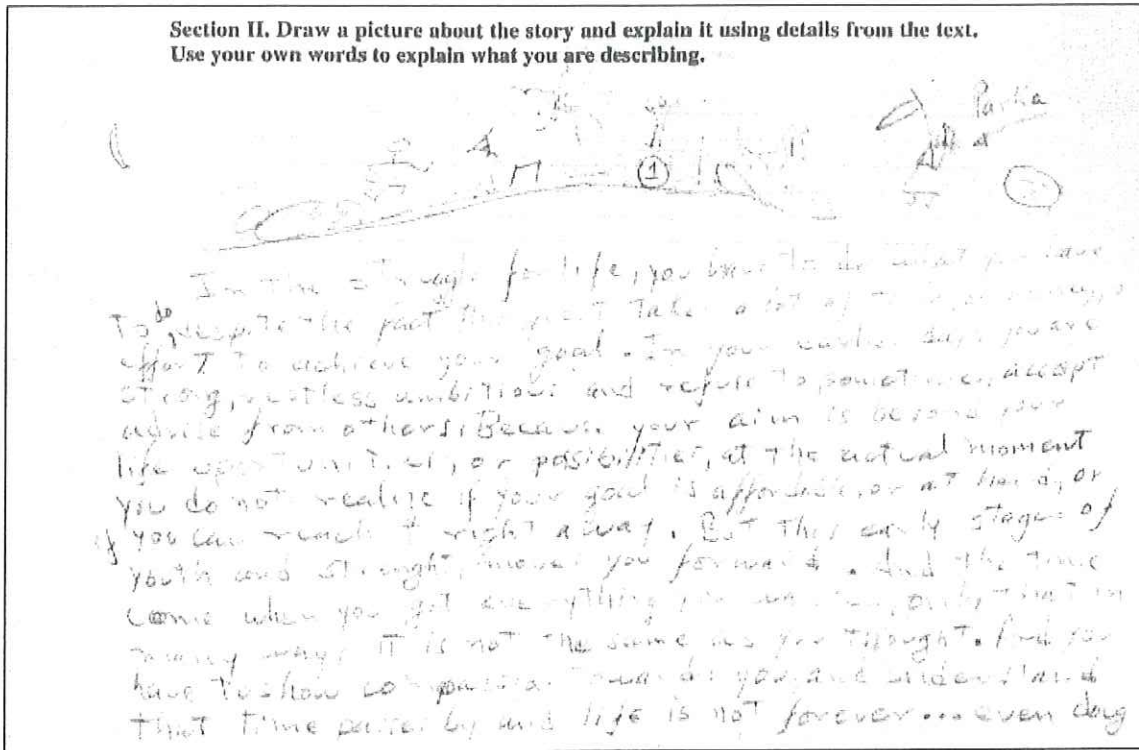 Section II. Draw a picture about the story and explain it using details from the text.
Use your own words to explain what you are describing.
1
In the for life, you have to do what you have
To do, despite the fact that
effort to achieve your goal. In your days you are
strong, restless ambitious and refuse to, sometimes, accept
advise from others; Because your aim is beyond your
life, or posibilities, at the actual moment
you do not realize if your goal is or at hand, or
if you can reach it right away. But this early stages of
youth and moves you forward. And the time
come when you get everything only that in
many ways it is not the same as you thought. And you
have to show you and understand
that time passes by and life is not forever... even dog